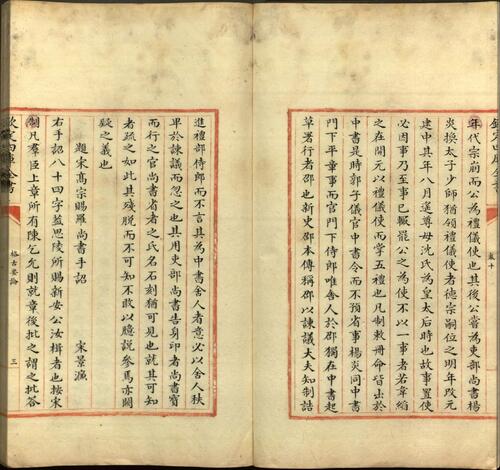 欽定四庫全書
卷十
年代宗前而公為禮儀使也其後公嘗為吏部尚書楊
炎換太子少師猶領禮儀使者德宗嗣位之明年改元
建中其年八月遙尊母沈氏為皇太后時也故事置使
必因事乃至事已輒罷公之為使不以一事者若韋縚
之在開元以禮儀使而掌五禮也凡制敕冊命皆出於
中書是時郭子儀官中書令而不預省事楊炎同中書
門下平章事而官門下侍郎唯舍人於邵獨在中書起
草署行者邵也新史邵本傳稱邵以諫議大夫知制誥
進禮部侍郎而不言其為中書舍人者意必以舍人秩
卑於諫議而忽之也其用吏部尚書告身印者尚書實
而行之官尚書省者之氏名石刻猶可見也就其可知
者疏之如此其殘脫而不可知不敢以臆說參焉亦闕
疑之義也
題宋高宗賜羅尚書手詔
宋景濂
右手詔八十四字蓋思陵所賜新安公汝楫者也按宋
制凡羣臣上章所有陳乞先則就章後批之謂之批答
欽定四庫全書
格古要論
三